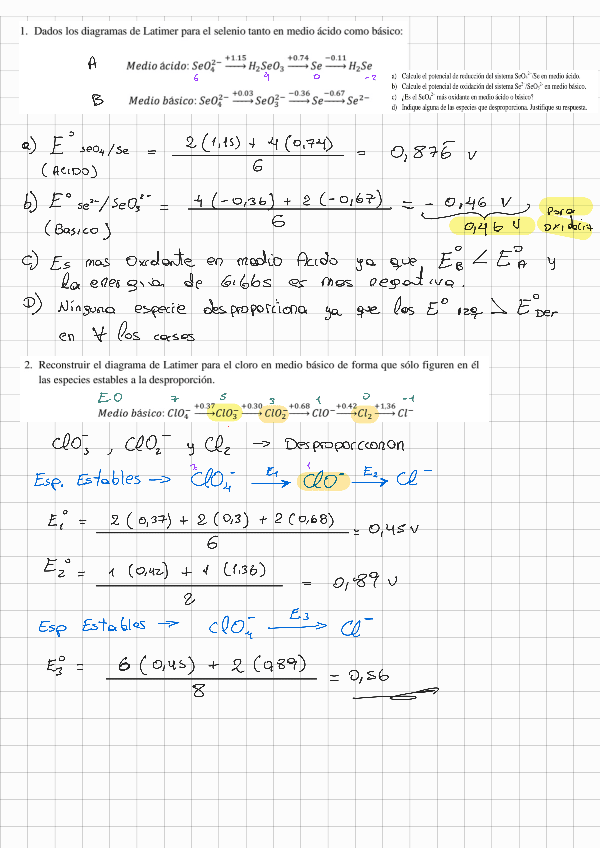 1. Dados los diagramas de Latimer para el selenio tanto en medio ácido como básico:
A Medio ácido: SeO₄²⁻ —+1.15→ H₂SeO₃ —+0.74→ Se —−0.11→ H₂Se
6 4 0 -2
B Medio básico: SeO₄²⁻ —+0.03→ SeO₃²⁻ —−0.36→ Se —−0.67→ Se²⁻
a) Calcule el potencial de reducción del sistema SeO₄²⁻/Se en medio ácido.
b) Calcule el potencial de oxidación del sistema Se²⁻/SeO₃²⁻ en medio básico.
c) ¿Es el SeO₄²⁻ más oxidante en medio ácido o básico?
d) Indique alguna de las especies que desproporciona. Justifique su respuesta.
a) E° SeO₄/Se = (2(1,15) + 4(0,74)) / 6 = 0,876 V
(ACIDO)
b) E° Se²⁻/SeO₃²⁻ = (4(-0,36) + 2(-0,67)) / 6 = - 0,46 V,
(Basico) 0,46 V para oxidacion
C) Es mas Oxidante en medio Acido ya que E°B < E°A y
la energia de Gibbs es mas negativa.
D) Ninguna especie desproporciona ya que los E° izq > E° DER
en ∀ los casos
2. Reconstruir el diagrama de Latimer para el cloro en medio básico de forma que sólo figuren en él
las especies estables a la desproporción.
E.O 7 5 3 1 0 -1
Medio básico: ClO₄⁻ —+0.37→ ClO₃⁻ —+0.30→ ClO₂⁻ —+0.68→ ClO⁻ —+0.42→ Cl₂ —+1.36→ Cl⁻
ClO₃⁻, ClO₂⁻ y Cl₂ → Desproporcionan
Esp. Estables → ClO₄⁻ —E₁→ ClO⁻ —E₂→ Cl⁻
7 1
E₁° = (2(0,37) + 2(0,3) + 2(0,68)) / 6 = 0,45 V
E₂° = (1(0,42) + 1(1,36)) / 2 = 0,89 V
Esp Estables → ClO₄⁻ —E₃→ Cl⁻
E₃° = (6(0,45) + 2(0,89)) / 8 = 0,56